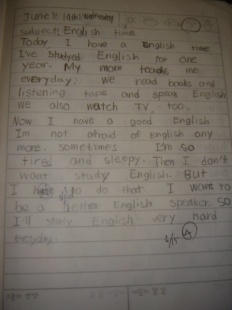 June 11(th) Wednesday
subject: English time
Today I have a English time
I've studied English for one
year. My mom teachs me
everyday. we read books and
listening tape and speak English
we also watch TV, too.
Now I have a good English
I'm not afraid of English any
more. sometimes I'm so
tired and sleepy. Then I don't
want study English. But
I to do that. I want to
be a better English speaker. so
I'll study English very hard
everyday.